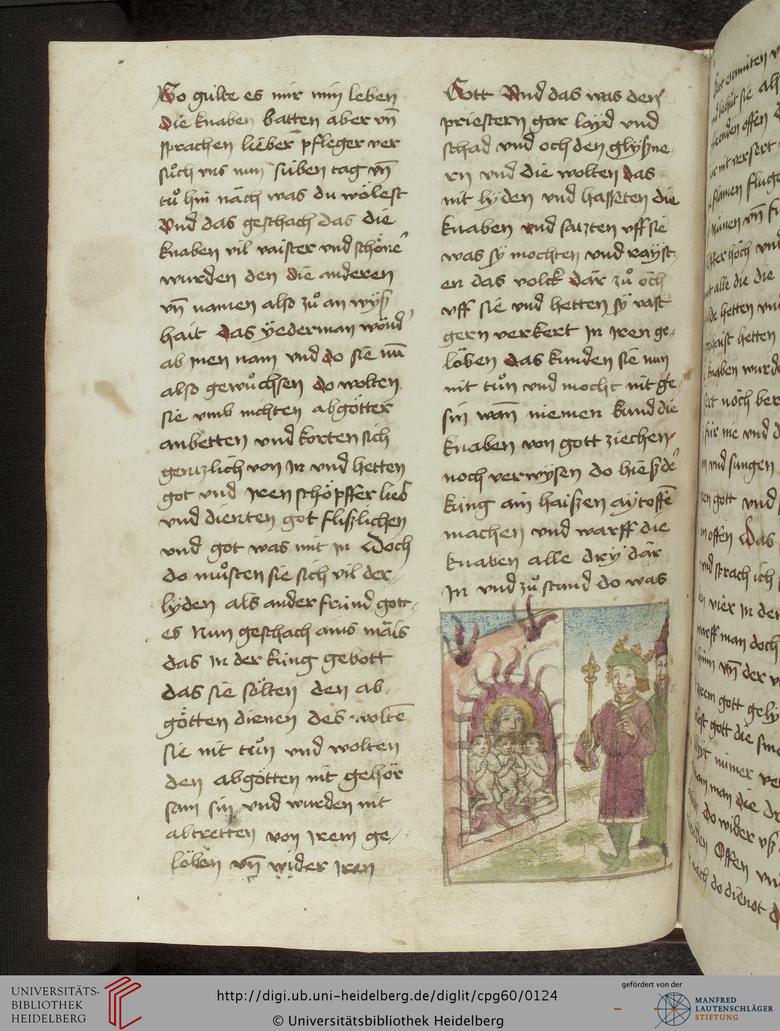 So gulte es mir min leben
die knaben batten aber vn̄
sprachen lieber pfleger ver
sůch vns nun suben tag vn̄
tů hin nach was du wölest
Vnd das geschach das die
knaben vil vaister vnd schöne
wurden den die anderen
vn̄ namen also zů an wyß
hait das yederman wund
ab inen nam vnd do sie nun
also gewůchsen do wolten
sie vmb nichten abgötter
anbetten vnd korten sich
gentzlich von in vnd hetten
got vnd iren schöpffer lieb
vnd dienten got flißlichen
vnd got was mit in Doch
do můsten sie sich vil der
lyden als ander fründ gott
es Nun geschach ains mals
das in der küng gebott
das sie sölten den ab
götten dienen des wolte
sie nit tůn vnd wolten
den abgötten nit gehör
sam sin vnd wurden nit
abtretten von irem ge
löben vn̄ wider iren
Gott Vnd das was den
priestern gar layd vnd
schad vnd och den glyßne
rn vnd die wolten das
nit lyden vnd hasseten die
knaben vnd saczten vff sie
was sy mochten vnd rayst
en das volck dar zů och
vff sie vnd hetten sy vast
gern verkert in iren ge
löben das kunden sie nun
nit tůn vnd mocht nit ge
sin wan̄ niemen kund die
knaben von gott ziechen
noch verwysen do hieß de
küng ain haissen aytoffe
machen vnd warff die
knaben alle dry dar
in vnd zů stund do was
UNIVERSITÄTS-
BIBLIOTHEK
HEIDELBERG
http://digi.ub.uni-heidelberg.de/diglit/cpg60/0124
© Universitätsbibliothek Heidelberg
gefördert von der
MANFRED
LAUTENSCHLÄGER
STIFTUNG